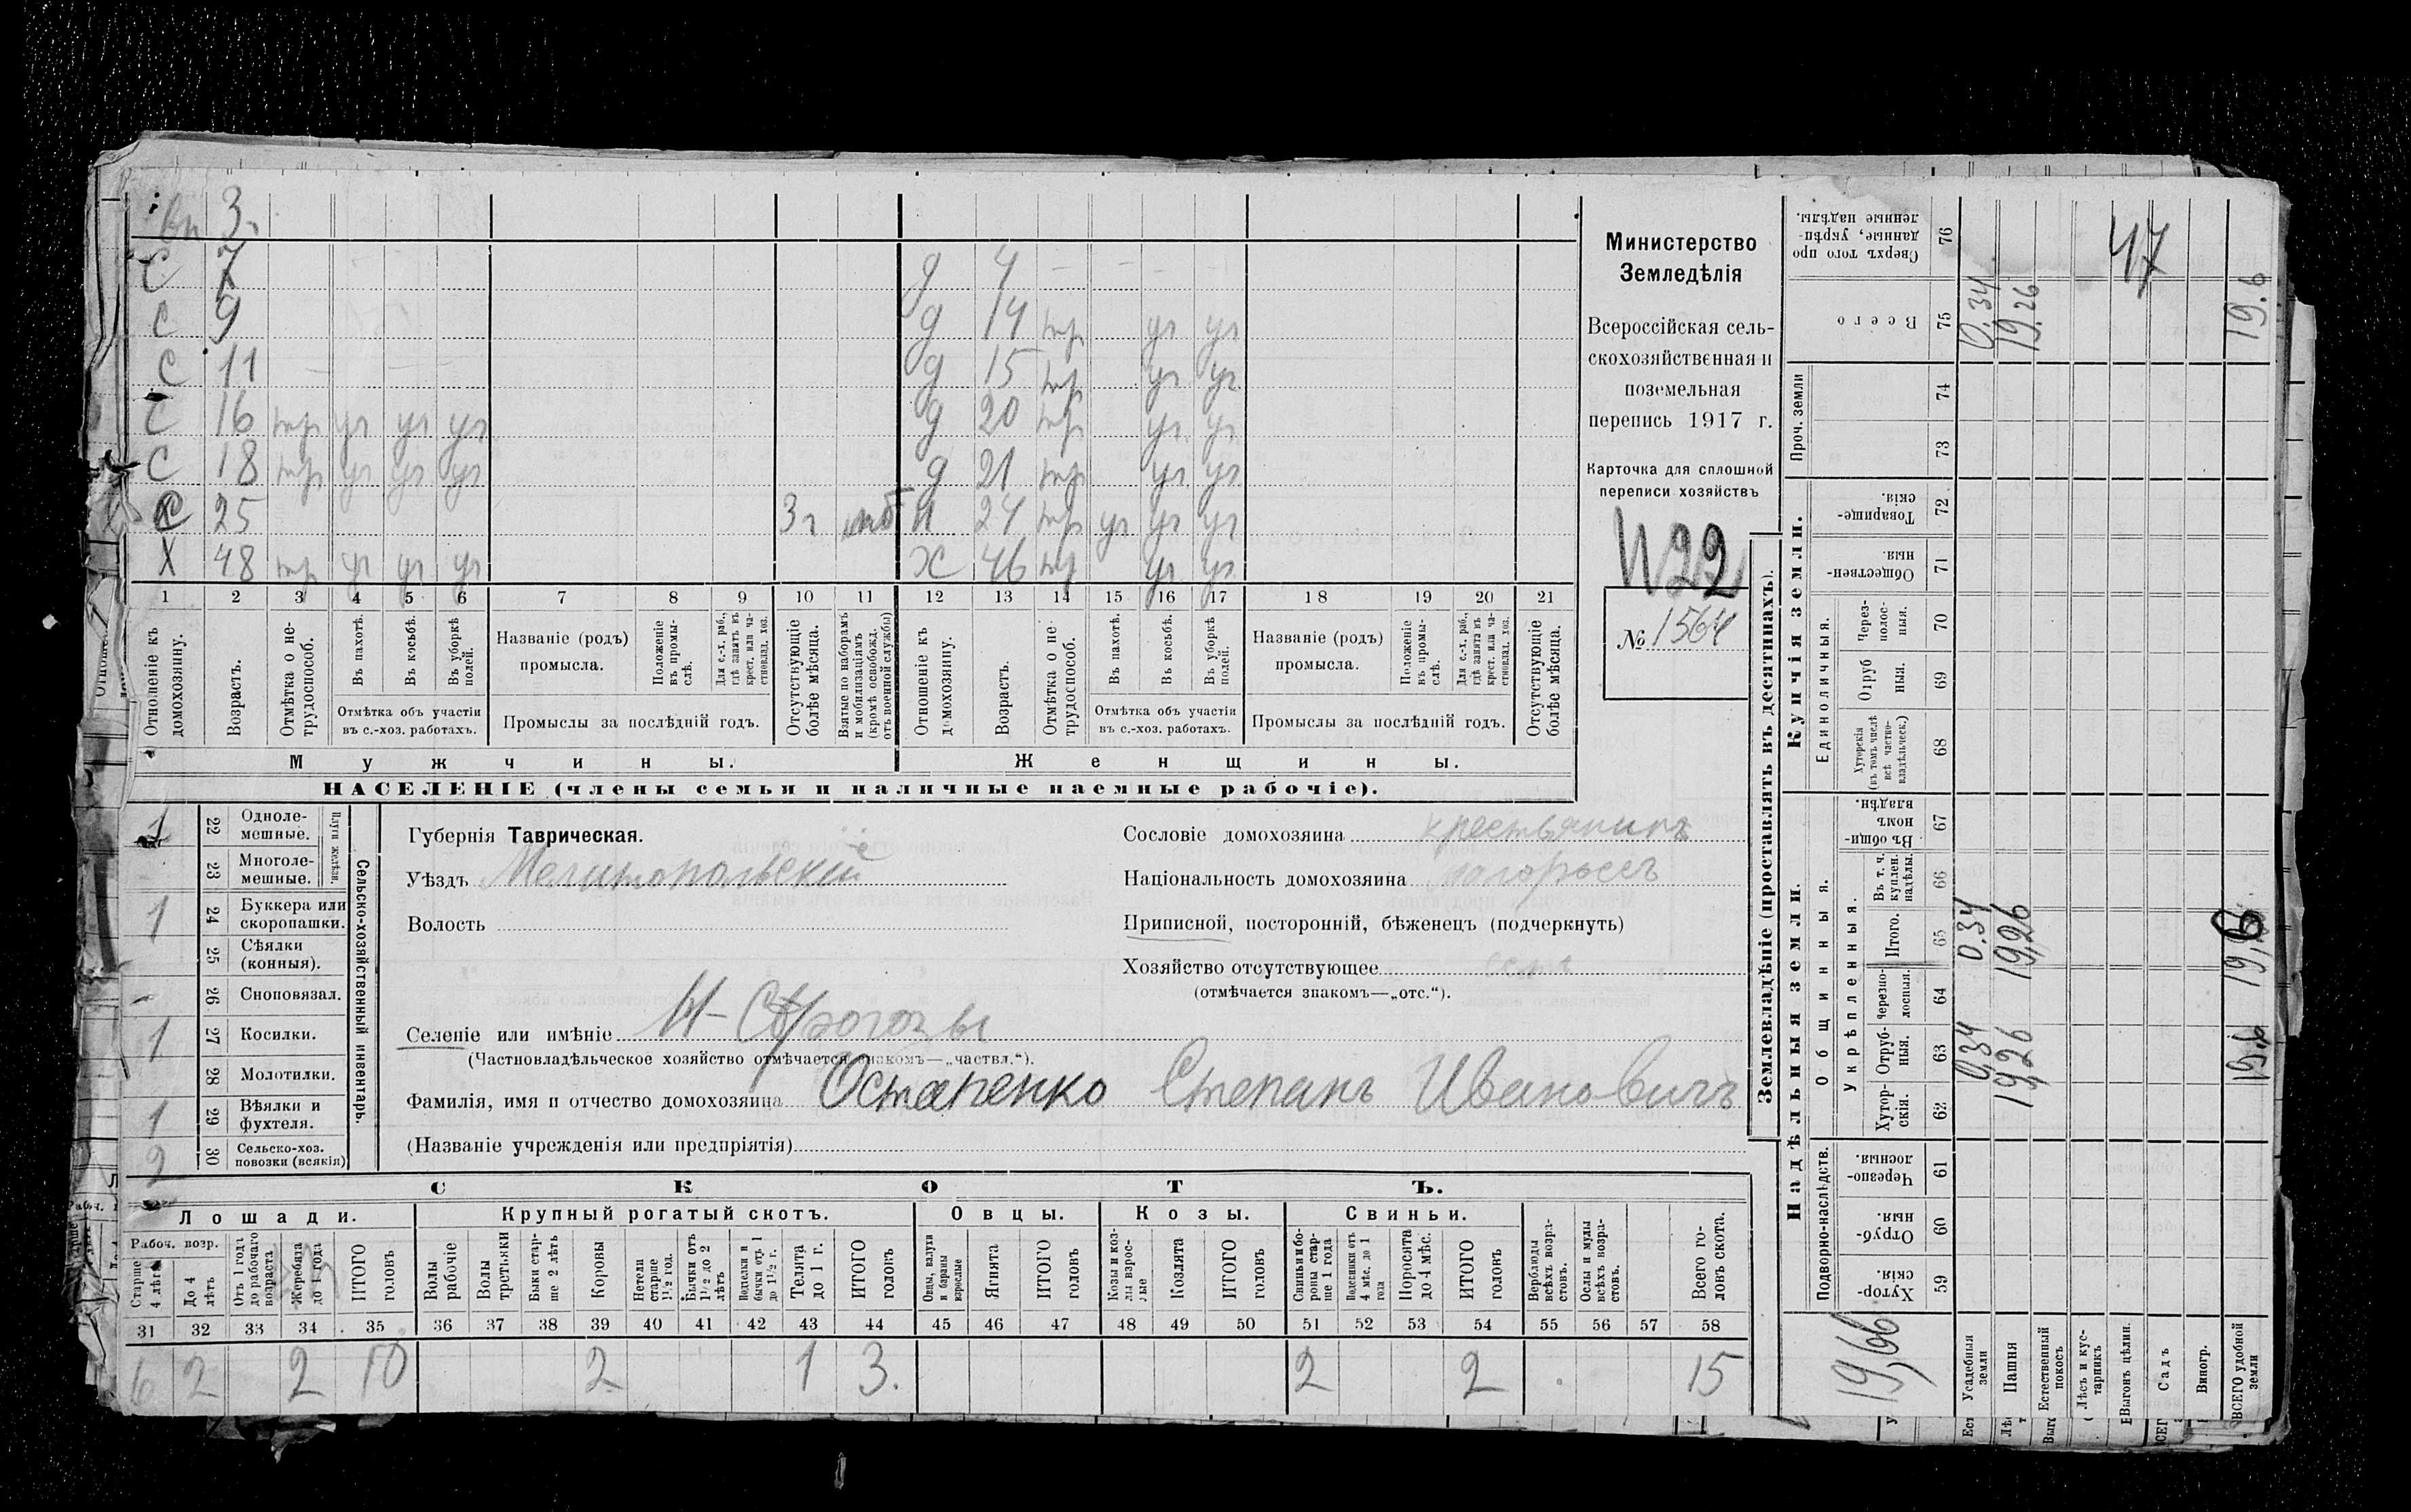 3
С 7 д 4
С 9 д 14 тр уч уч
С 11 д 15 тр уч уч
С 16 тр уч уч уч д 20 тр уч уч
С 18 тр уч уч уч д 21 тр уч уч
С 25 3 г н 24 тр уч уч уч
Х 48 тр уч уч уч х 46 тр уч уч
1 2 3 4 5 6 7 8 9 10 11 12 13 14 15 16 17 18 19 20 21
Отношеніе къ домохозяину.
Возрастъ.
Отмѣтка о нетрудоспособ.
Въ пахотѣ.
Въ косьбѣ.
Въ уборкѣ полей.
Отмѣтка объ участіи
въ с.-хоз. работахъ.
Названіе (родъ)
промысла.
Положеніе въ промыслѣ.
Для с.-х. раб., гдѣ занятъ въ крест. или частновлад. хоз.
Промыслы за послѣдній годъ.
Отсутствующіе болѣе мѣсяца.
Взятые по наборамъ и мобилизаціямъ (кромѣ освобожд. отъ военной службы)
Отношеніе къ домохозяину.
Возрастъ.
Отмѣтка о нетрудоспособ.
Въ пахотѣ.
Въ косьбѣ.
Въ уборкѣ полей.
Отмѣтка объ участіи
въ с.-хоз. работахъ.
Названіе (родъ)
промысла.
Положеніе въ промыслѣ.
Для с.-х. раб., гдѣ занята въ крест. или частновлад. хоз.
Промыслы за послѣдній годъ.
Отсутствующіе болѣе мѣсяца.
Мужчины. Женщины.
НАСЕЛЕНІЕ (члены семьи и наличные наемные рабочіе).
Министерство
Земледѣлія
Всероссійская сель-
скохозяйственная и
поземельная
перепись 1917 г.
Карточка для сплошной
переписи хозяйствъ
422
№ 1564
1 22 Одноле-
мешные.
23 Многоле-
мешные.
Плуги желѣзн.
1 24 Буккера или
скоропашки.
25 Сѣялки
(конныя).
26 Сноповязал.
1 27 Косилки.
28 Молотилки.
1 29 Вѣялки и
фухтеля.
2 30 Сельско-хоз.
повозки (всякія)
Сельско-хозяйственный инвентарь.
Губернія Таврическая.
Уѣздъ Мелитопольскій
Волость
Сословіе домохозяина крестьянинъ
Національность домохозяина малороссъ
Приписной, посторонній, бѣженецъ (подчеркнуть)
Хозяйство отсутствующее
(отмѣчается знакомъ—„отс.“).
Селеніе или имѣніе Н-Сѣрогозы
(Частновладѣльческое хозяйство отмѣчается знакомъ—„частвл.“).
Фамилія, имя и отчество домохозяина Остапенко Степанъ Ивановичъ
(Названіе учрежденія или предпріятія)
СКОТЪ.
Лошади. Крупный рогатый скотъ. Овцы. Козы. Свиньи.
Рабоч. возр.
Старше 4 лѣтъ
До 4 лѣтъ
Отъ 1 года до рабочаго возраста
Жеребята до 1 года
ИТОГО головъ
Волы рабочіе
Волы третьяки
Быки старше 2 лѣтъ
Коровы
Нетели старше 1½ год.
Бычки отъ 1½ до 2 лѣтъ
Подтелки и бычки отъ 1 до 1½ г.
Телята до 1 г.
ИТОГО головъ
Овцы, валухи и бараны взрослые
Ягнята
ИТОГО головъ
Козы и козлы взрослые
Козлята
ИТОГО головъ
Свиньи и бороны старше 1 года
Подсвинки отъ 4 мѣс. до 1 года
Поросята до 4 мѣс.
ИТОГО головъ
Верблюды всѣхъ возрастовъ.
Ослы и мулы всѣхъ возрастовъ.
Всего головъ скота.
31 32 33 34 35 36 37 38 39 40 41 42 43 44 45 46 47 48 49 50 51 52 53 54 55 56 57 58
6 2 2 10 2 1 3. 2 2 15
Землевладѣніе (проставлять въ десятинахъ).
Надѣльныя земли. Купчія земли. Проч. земли
Подворно-наслѣдств.
Общинныя.
Укрѣпленныя.
Единоличныя.
Хуторскія. 59
Отрубныя. 60
Черезполосныя. 61
Хуторскія. 62
Отрубныя. 63
Черезполосныя. 64
Итого. 65
Въ т. ч. куплен. надѣлы. 66
Въ общинномъ владѣн. 67
Хуторскія (въ томъ числѣ всѣ частновладѣльческ.) 68
Отрубныя. 69
Черезполосныя. 70
Общественныя. 71
Товарищескія. 72
73
74
Всего 75
Сверхъ того проданные, укрѣпленные надѣлы. 76
19,66
Усадебныя земли 0,34 0,34 0,34
Пашня 19,26 19,26 19,26
Естественный покосъ
Лѣсъ и кустарникъ
Выгонъ цѣлин.
Садъ
Виногр.
ВСЕГО удобной земли 19,6 19,6 19.6
47